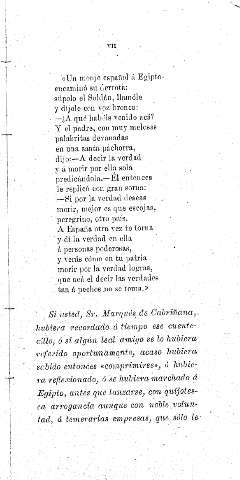 VII
«Un monje español á Egipto
encaminó su derrota:
súpolo el Soldán, llamóle
y díjole con voz bronca:
—¿A qué habéis venido acá?
Y el padre, con muy melosas
palabritas devanadas
en una santa pachorra,
dijo:—A decir la verdad
y á morir por ella sola
predicándola.—Él entonces
le replicó con gran sorna:
—Si por la verdad deseas
morir, mejor es que escojas,
peregrino, otro país.
A España otra vez te torna
y dí la verdad en ella
á personas poderosas,
y verás cómo en tu patria
morir por la verdad logras,
que acá el decir las verdades
tan á pechos no se toma.»
Si usted, Sr. Marqués de Cabriñana,
hubiera recordado á tiempo ese cuente-
cillo, ó si algún leal amigo se lo hubiera
referido oportunamente, acaso hubiera
sabido entonces «comprimirse», ó hubie-
ra reflexionado, ó se hubiera marchado á
Egipto, antes que lanzarse, con quijotes-
ca arrogancia aunque con noble volun-
tad, á temerarias empresas, que sólo le